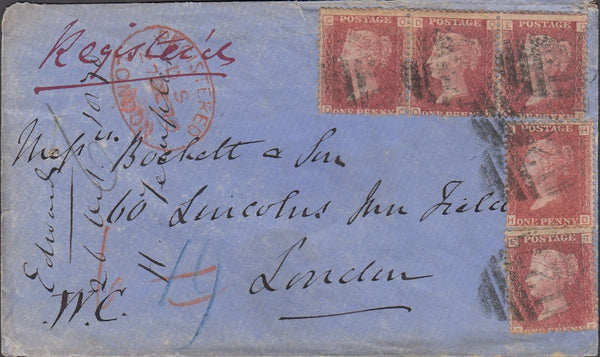 Register'd
REGISTERED
LONDON
POSTAGE
ONE PENNY
POSTAGE
ONE PENNY
POSTAGE
ONE PENNY
POSTAGE
ONE PENNY
POSTAGE
Mess.rs Bockett & Son
60 Lincolns Inn Fields
London
W.C.
Edward
Temple